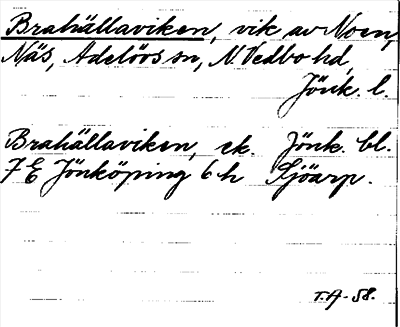 Brahällaviken, vik av Noen,
Näs, Adelövs sn, N. Vedbo hd,
Jönk. l.
Brahällaviken, ek. Jönk. bl.
7 E Jönköping 6 h Sjöarp.
T.A-58.